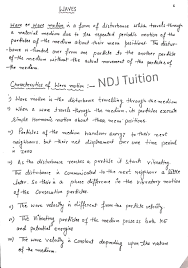 WAVES
Wave or wave motion is a form of disturbance which travels through
a material medium due to the repeated periodic motion of the
particles of the medium about their mean positions. The distur-
bance is handed over from one particle to the another particle
of the medium without the actual movement of the particles of
the medium.
Characteristics of Wave motion :-
NDJ Tuition
i) Wave motion is the disturbance travelling through the medium
ii) When a wave travels through the medium, its particles execute
Simple harmonic motion about their mean positions
iii) Particles of the medium transfer energy to their next
neighbour, but their net displacement over one time period
= zero
iv) As the disturbance reaches a particle it starts vibrating.
The disturbance is communicated to the next neighbour a little
later. So there is a phase difference in the vibratory motion
of the Consecutive particles.
v) Wave velocity is different from the particle velocity.
vi) The vibrating particles of the medium possess both KE
and potential energies
vii) The wave velocity is constant depending upon the nature
of the medium.